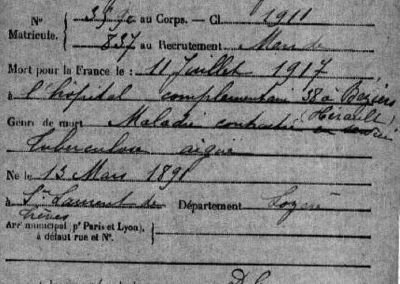 N° 3590 au Corps. — Cl. 1911
Matricule. 837 au Recrutement Mende
Mort pour la France le : 11 Juillet 1917
à l'hôpital complémentaire 38 à Béziers
(Hérault)
Genre de mort Maladie contractée en service
Tuberculose aigüe
Né le 13 Mars 1891
à St Laurent de Département Lozère
Trèves
Arr' municipal (p' Paris et Lyon),
à défaut rue et N°.